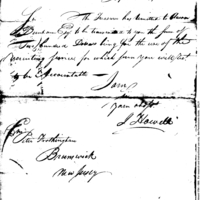 Sir The Treasurer has remitted to Aaron
Dunham Esqr to be transmitted to you the sum of
Two hundred Dollars being for the use of the
recruiting service for which sum you will
to be Accountable
I am
your obt
J Howell
Peter Frothingham
Brunswick
New Jersey